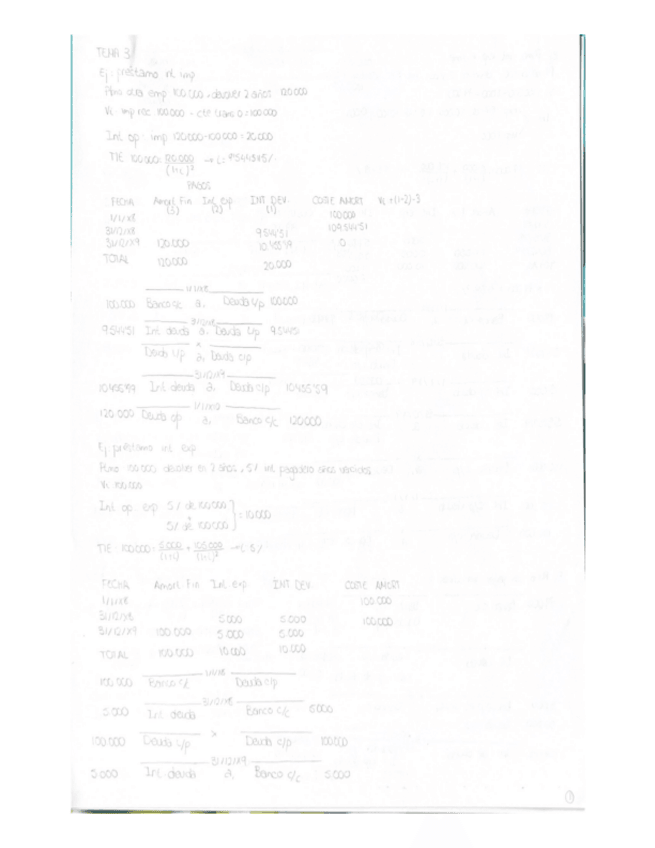 TEMA 3
Ej. préstamo int imp
100.000, devolver 2 años 120.000
Vi imp rec 100.000 - cte trans 0 = 100.000
Int. op. imp 120.000-100.000 = 20.000
TIE 100.000 = 120.000/(1+i)² → i = 9'544515%
PAGOS
FECHA Amort. Fin (3) Int. exp. (2) INT. DEV. (1) COSTE AMORT
1/1/X8 100.000
31/12/X8 9544'51 109.544'51
31/12/X9 120.000 10455'49 0
TOTAL 120.000 20.000
1/1/X8
100.000 Banco c/c a. Deuda l/p 100.000
31/12/X8
9544'51 Int. deuda a. Deuda l/p
x
Deuda l/p a. Deuda c/p
31/12/X9
Int. deuda a. Deuda c/p
120.000 Deuda c/p a. Banco c/c 120.000
Ej. préstamo int. exp
100.000 devolver en 2 años, 5% int. pagadero años vencidos
Vi 100.000
Int. op. exp 5% de 100.000
5% de 100.000 } = 10.000
TIE - 100.000 = 5.000/(1+i) + 105.000/(1+i)² → i. 5%
FECHA Amort. Fin Int. exp INT DEV. COSTE AMORT
1/1/X8 100.000
31/12/X8 5.000 5.000 100.000
31/12/X9 100.000 5.000 5.000
TOTAL 100.000 10.000 10.000
1/1/X8
100.000 Banco c/c Deuda l/p
31/12/X8
5.000 Int. deuda Banco c/c 5000
x
100.000 Deuda l/p Deuda c/p 100.000
31/12/X9
5.000 Int. deuda a. Banco c/c 5.000
1